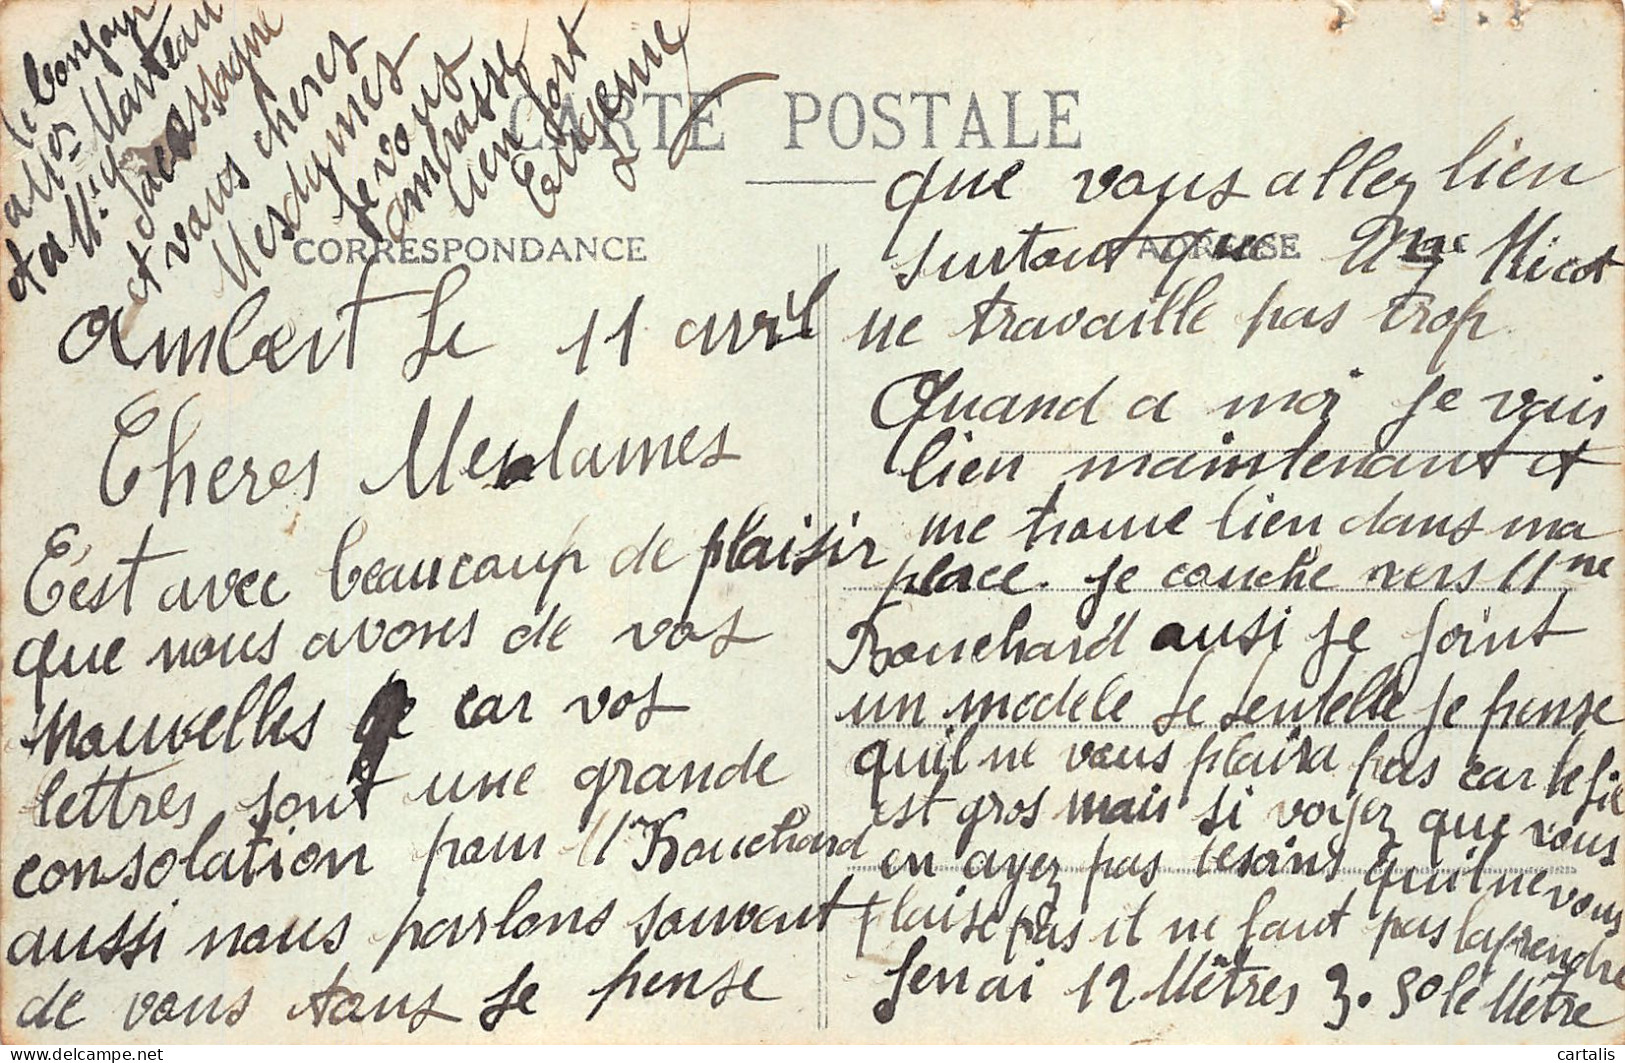 CARTE POSTALE
CORRESPONDANCE
ADRESSE
Ambert Le 11 avril
Cheres Mesdames
C'est avec beaucoup de plaisir
que nous avons de vos
nouvelles car vos
lettres sont une grande
consolation pour Mr Bouchard
aussi nous parlons souvent
de vous tous Je pense
que vous allez bien
surtout que Mme Micot
ne travaille pas trop
Quand a moi Je vais
bien maintenant et
me trouve bien dans ma
place. Je couche vers Mme
Bouchard ausi Je Joint
un modele de dentelle Je pense
quil ne vous plaira pas car le fil
est gros mais si voyez que vous
en ayez pas besoins quil ne vous
plaise pas il ne faut pas la prendre
Jen ai 12 Mètres 3.50 le Mètre
le bonjour
a Mr Marteau
et a Mr Jacassagne
et vous cheres
Mesdames
Je vous
ambrasse
bien fort
Eugenne
cartalis
www.delcampe.net